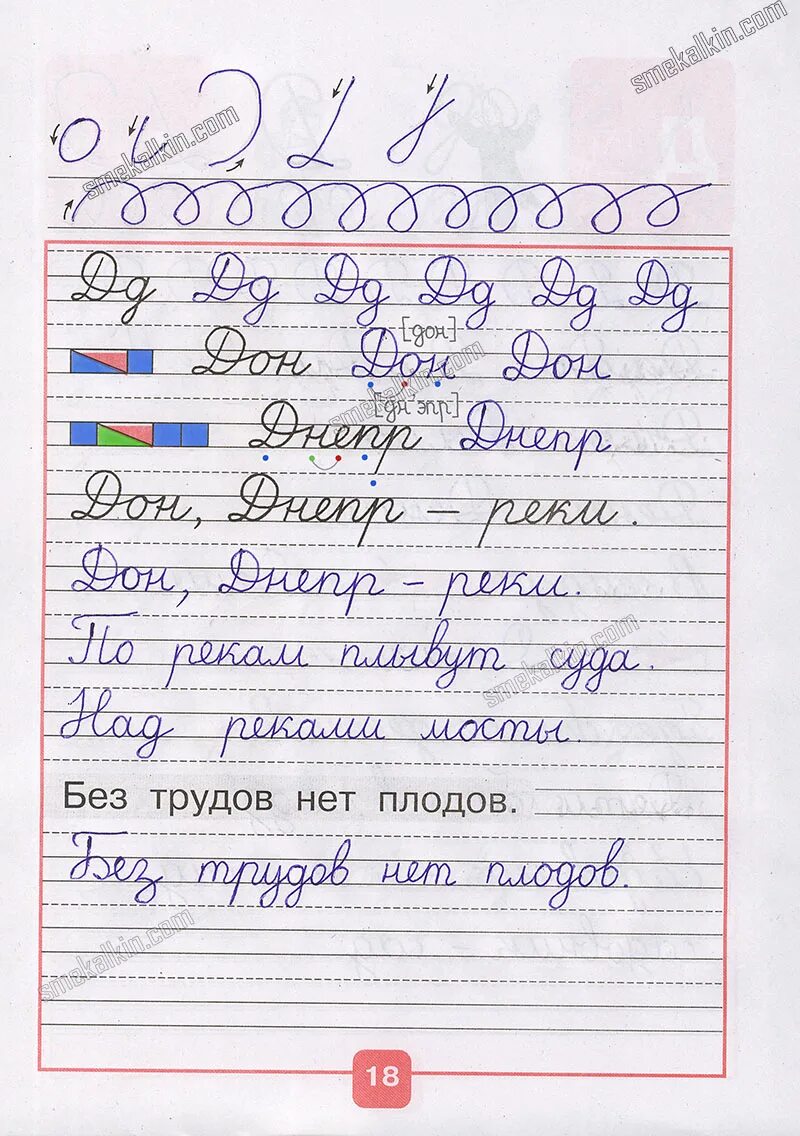 smekalkin.com
smekalkin.com
Дд Дд Дд Дд Дд Дд
[дон]
Дон Дон Дон
smekalkin.com
[дн эпр]
Днепр Днепр
Дон, Днепр – реки.
Дон, Днепр – реки.
По рекам плывут суда.
smekalkin.com
Над реками мосты.
Без трудов нет плодов.
Без трудов нет плодов.
smekalkin.com
18